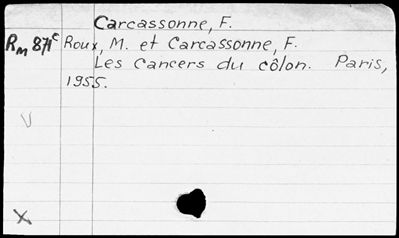 Carcassonne, F.
Rm 871c Roux, M. et Carcassonne, F.
Les Cancers du côlon. Paris,
1955.
V
X